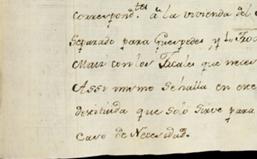 correspond.tes a la vivienda del
separado para Guespedes, y la Tro
Maiz con los Tacales que neces
Assi mismo se halla en exe
destituida que solo sirve para
Caso de Necesidad.